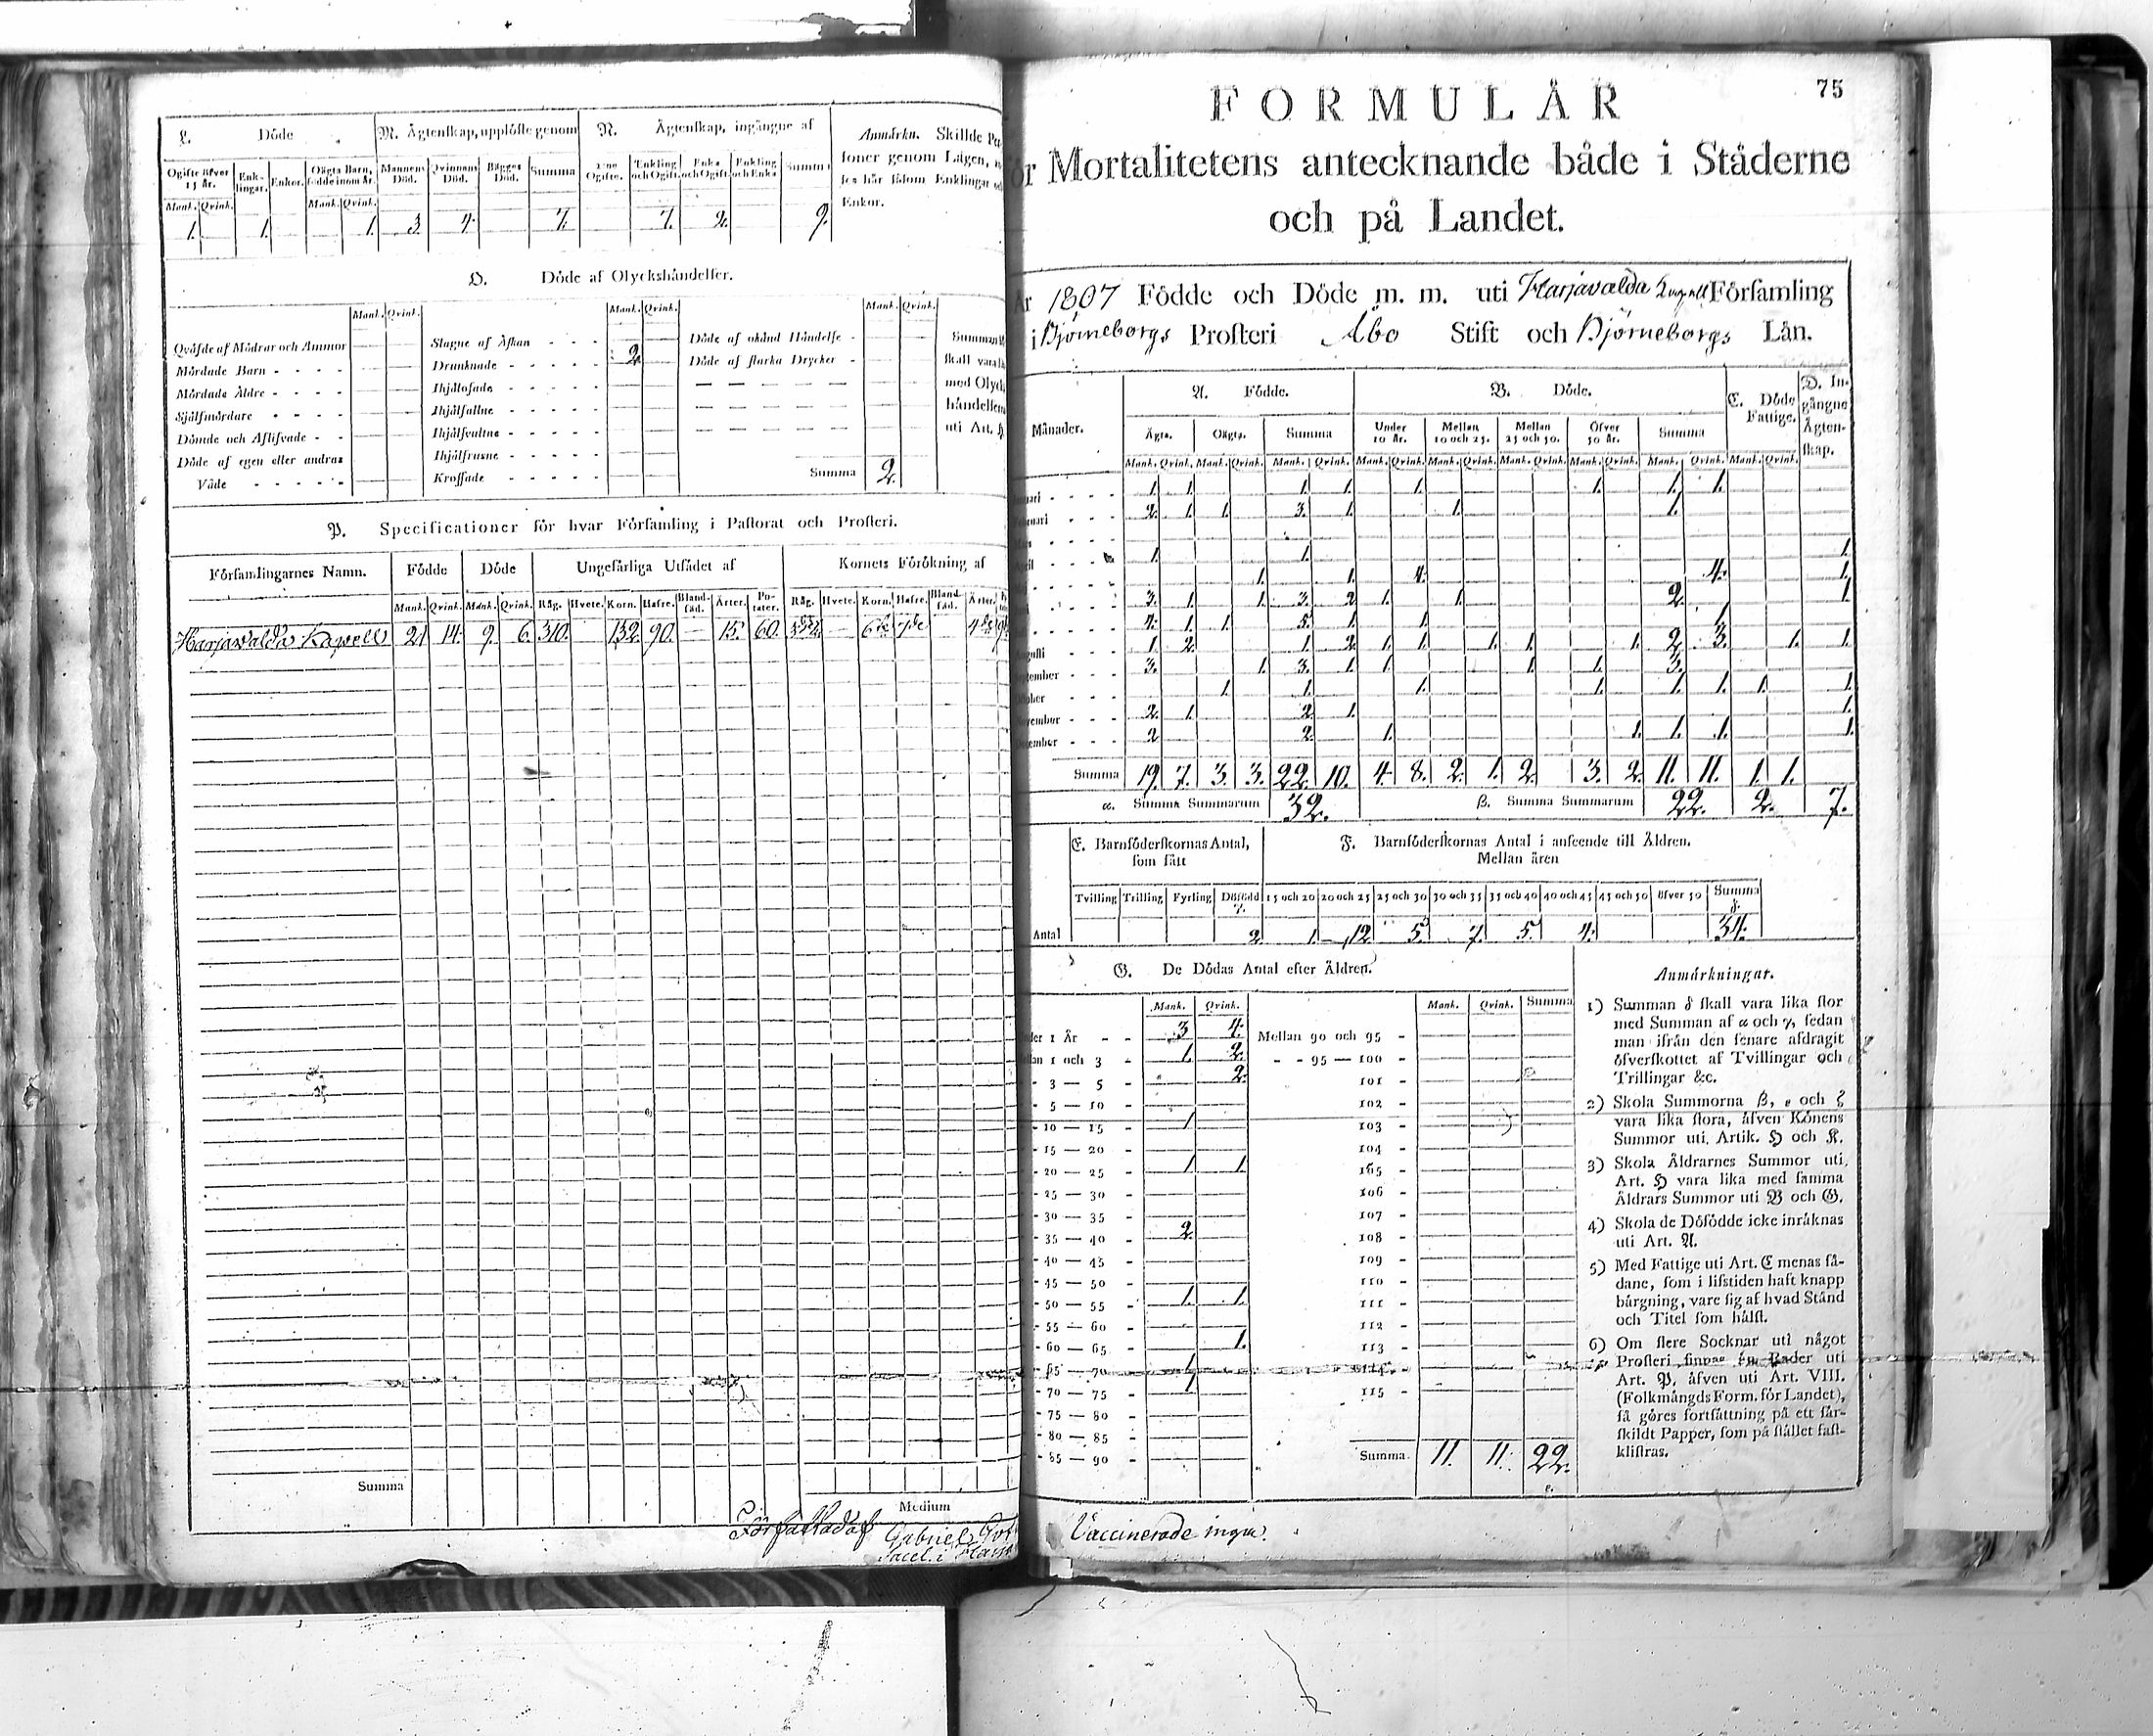 L. Döde
M. Ägtenſkap, upplöſte genom
N. Ägtenſkap, ingångne af
Ogifte öfver 15 år.
Enklingar.
Enkor.
Oägta Barn, födde inom år.
Mannens Död.
Qvinnans Död.
Bägges Död.
Summa
Ogifte.
Enkling och Ogift.
Enka och Ogift.
Enkling och Enka
Summa
Mank. Qvink. Mank. Qvink.
1. 1. 1. 3. 4. 7. 7. 2. 9.
Anmärkn. Skillde
ſoner genom Lagen,
ſes här ſåſom Enklingar
Enkor.
O. Döde af Olyckshändelſer.
Mank. Qvink. Mank. Qvink. Mank. Qvink.
Qväfde af Mödrar och Ammor
Mördade Barn - - - -
Mördade Äldre - - - -
Själfmördare - - - -
Dömde och Aflifvade - -
Döde af egen eller andras
Våde - - - - -
Slagne af Åſkan - - -
Drunknade - - - - - 2
Ihjälfallne - - - - -
Ihjälfruſne - - - - -
Kroſſade - - - - -
Döde af okänd Händelſe -
Döde af ſtarka Drycker -
Summa 2.
ſkall vara
med
händelſerna
uti Art.
P. Specificationer för hvar Förſamling i Paſtorat och Proſteri.
Förſamlingarnes Namn. Födde Döde Ungefärliga Utſädet af Kornets Förökning af
Mank. Qvink. Mank. Qvink. Råg. Hvete. Korn. Hafre. Blandſäd. Ärter. Potater. Råg. Hvete. Korn. Hafre. Blandſäd. Ärter.
Harjawalda Kapell 21 14. 9. 6. 310. — 132. 90. — 15. 60.
Summa
Medium
Författad af Gabriel
75
FORMULÄR
Mortalitetens antecknande både i Städerne
och på Landet.
1807 Födde och Döde m. m. uti Harjavalda Förſamling
i Björneborgs Proſteri Åbo Stift och Björneborgs Län.
Månader.
A. Födde.
B. Döde.
C. Döde Fattige.
D. Ingångne Ägtenſkap.
Ägta. Oägta. Summa
Under 10 år. Mellan 10 och 25. Mellan 25 och 50. Öfver 50 år. Summa
Mank. Qvink. Mank. Qvink. Mank. Qvink. Mank. Qvink. Mank. Qvink. Mank. Qvink. Mank. Qvink. Mank. Qvink. Mank. Qvink.
1. 1. 1. 1. 1. 1. 1. 1.
2. 1. 1. 3. 1. 1. 1.
1. 1. 1.
1. 1. 4. 4. 1.
3. 1. 1. 3. 2. 1. 1. 2. 1.
4. 1. 1. 5. 1. 1. 1.
1. 2. 1. 2. 1. 1. 1. 1. 1. 2. 3. 1. 1.
3. 1. 3. 1. 1. 1. 1. 3.
1. 1. 1. 1. 1. 1. 1. 1.
2. 1. 2. 1. 1.
2 2. 1. 1. 1. 1. 1.
Summa 19. 7. 3. 3. 22. 10. 4. 8. 2. 1. 2. 3. 2. 11. 11. 1. 1.
α. Summa Summarum 32. β. Summa Summarum 22. 2. 7.
E. Barnföderſkornas Antal, ſom fått
F. Barnföderſkornas Antal i anſeende till Åldren.
Mellan åren
Tvilling Trilling Fyrling Dödfödd 15 och 20 20 och 25 25 och 30 30 och 35 35 och 40 40 och 45 45 och 50 öfver 50 Summa
Antal 2. 1. 12. 5. 7. 5. 4. 34.
G. De Dödas Antal efter Åldren.
Mank. Qvink. Mank. Qvink. Summa
1 År - - 3 4. Mellan 90 och 95 -
1 och 3 - 1. 2. - - 95 — 100 -
- 3 — 5 - 2. 101 -
- 5 — 10 - 102 -
- 10 — 15 - 1 103 -
- 15 — 20 - 104 -
- 20 — 25 - 1 1 105 -
- 25 — 30 - 106 -
- 30 — 35 - 107 -
- 35 — 40 - 2. 108 -
- 40 — 45 - 109 -
- 45 — 50 - 110 -
- 50 — 55 - 1. 1. 111 -
- 55 — 60 - 112 -
- 60 — 65 - 1. 113 -
- 65 — 70 - 1 114 -
- 70 — 75 - 1 115 -
- 75 — 80 -
- 80 — 85 -
- 85 — 90 - Summa. 11. 11. 22.
Anmärkningar.
1) Summan δ ſkall vara lika ſtor
med Summan af α och γ, ſedan
man ifrån den ſenare afdragit
öfverſkottet af Tvillingar och
Trillingar &c.
2) Skola Summorna β, ε och ζ
vara lika ſtora, äfven Könens
Summor uti Artik. H och K.
3) Skola Åldrarnes Summor uti
Art. H vara lika med ſamma
Åldrars Summor uti B och G.
4) Skola de Dödfödde icke inräknas
uti Art. A.
5) Med Fattige uti Art. C menas ſådane,
ſom i lifstiden haft knapp
bärgning, vare ſig af hvad Stånd
och Titel ſom hälſt.
6) Om flere Socknar uti något
Proſteri finnas än Rader uti
Art. P, äfven uti Art. VIII.
(Folkmängds Form. för Landet),
ſå göres fortſättning på ett ſärſkildt
Papper, ſom på ſtället faſtkliſtras.
Vaccinerade inga.